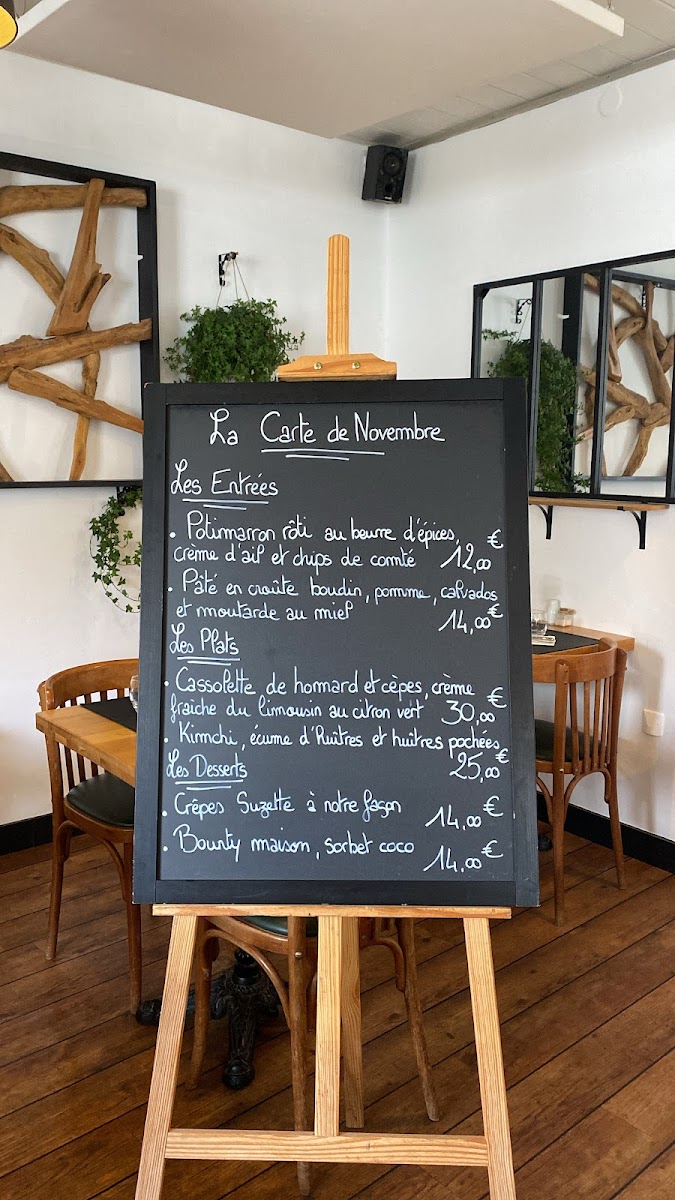 La Carte de Novembre
Les Entrées
. Potimarron rôti au beurre d'épices,
crème d'ail et chips de comté 12,00 €
. Pâté en croûte boudin, pomme, calvados
et moutarde au miel 14,00 €
Les Plats
. Cassolette de homard et cèpes, crème
fraiche du limousin au citron vert 30,00 €
. Kimchi, écume d'huîtres et huîtres pochées
25,00 €
Les Desserts
. Crêpes Suzette à notre façon 14,00 €
. Bounty maison, sorbet coco 14,00 €